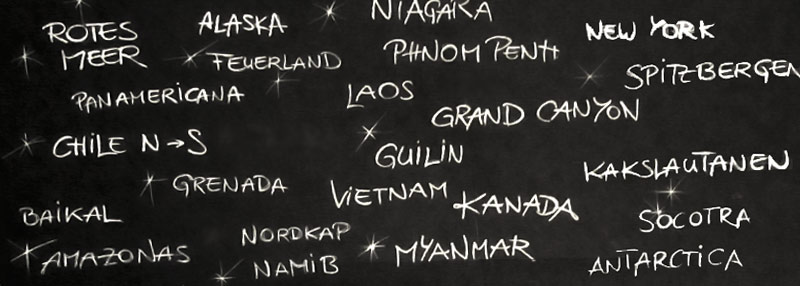 NIAGARA
ALASKA
NEW YORK
ROTES
MEER
FEUERLAND
PHNOM PENH
SPITZBERGEN
PANAMERICANA
LAOS
GRAND CANYON
CHILE N→S
GUILIN
KAKSLAUTANEN
GRENADA
VIETNAM
KANADA
BAIKAL
SOCOTRA
NORDKAP
AMAZONAS
MYANMAR
NAMIB
ANTARCTICA